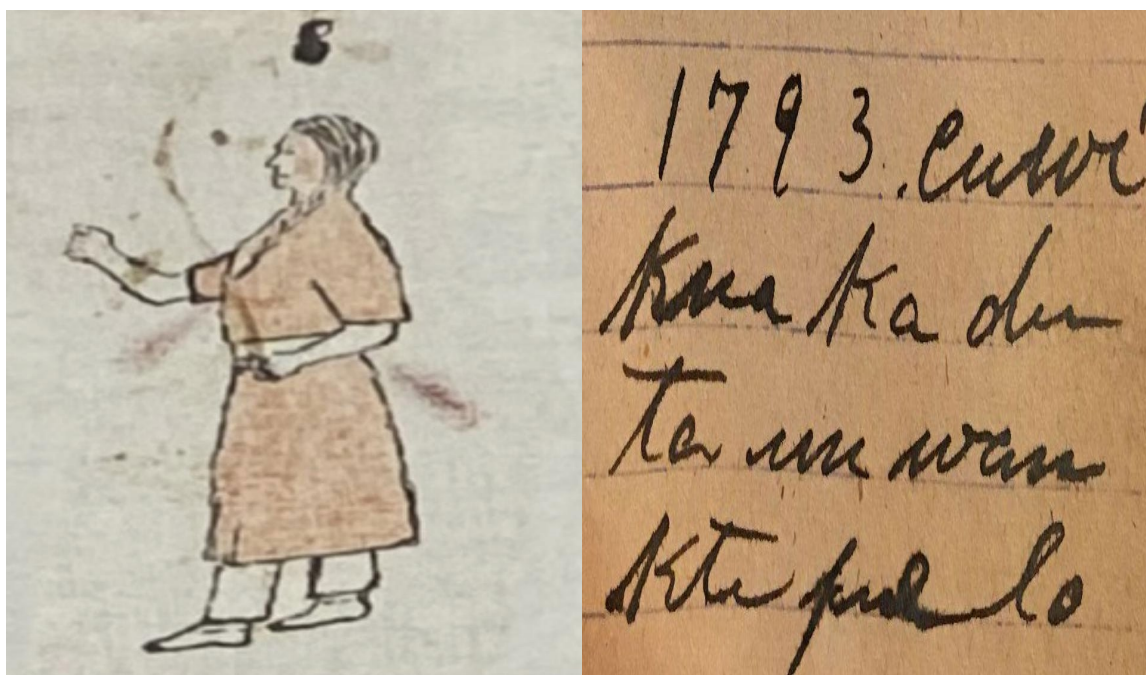 1793. cuwi
knaka du
ta un wan
ktepelo